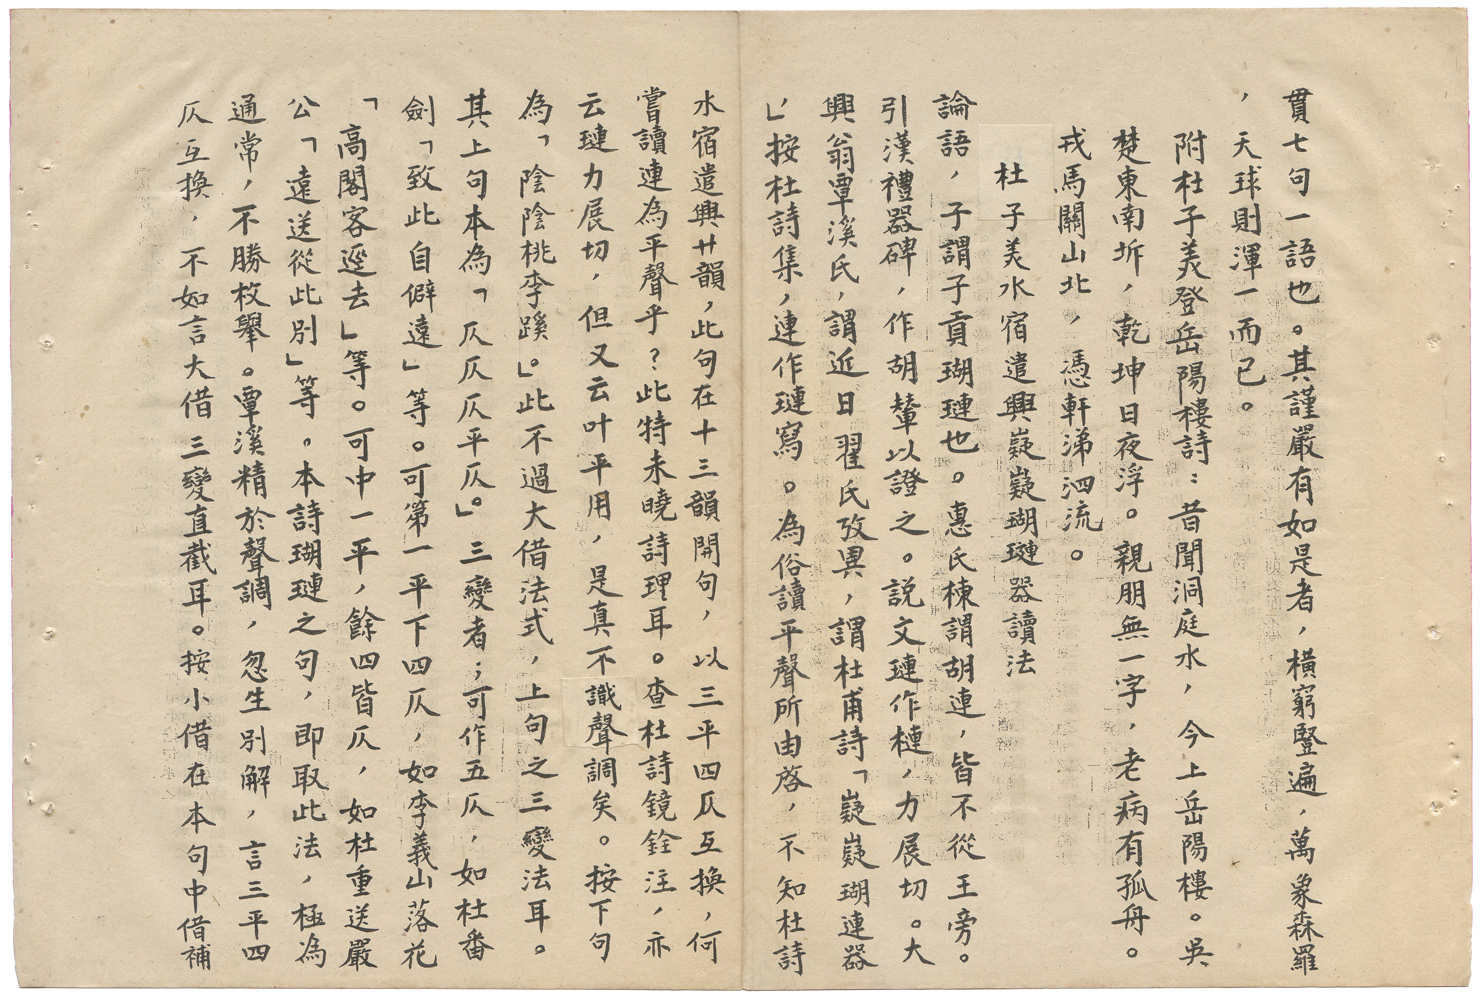 貫七句一語也。其謹嚴有如是者，橫窮豎遍，萬象森羅
，天球則渾一而已。
附杜子美登岳陽樓詩：昔聞洞庭水，今上岳陽樓。吳
楚東南坼，乾坤日夜浮。親朋無一字，老病有孤舟。
戎馬關山北，憑軒涕泗流。
杜子美水宿遣興嶷嶷瑚璉器讀法
論語，子謂子貢瑚璉也。惠氏棟謂胡連，皆不從王旁。
引漢禮器碑，作胡輦以證之。說文璉作槤，力展切。大
興翁覃溪氏，謂近日翟氏攷異，謂杜甫詩「嶷嶷瑚連器
」按杜詩集，連作璉寫。為俗讀平聲所由啓，不知杜詩
水宿遣興廿韻，此句在十三韻開句，以三平四仄互換，何
嘗讀連為平聲乎？此特未曉詩理耳。查杜詩鏡銓注，亦
云璉力展切，但又云叶平用，是真不識聲調矣。按下句
為「陰陰桃李蹊。」此不過大借法式，上句之三變法耳。
其上句本為「仄仄仄平仄。」三變者；可作五仄，如杜番
劍「致此自僻遠」等。可第一平下四仄，如李義山落花
「高閣客逕去」等。可中一平，餘四皆仄，如杜重送嚴
公「遠送從此別」等。本詩瑚璉之句，即取此法，極為
通常，不勝枚舉。覃溪精於聲調，忽生別解，言三平四
仄互換，不如言大借三變直截耳。按小借在本句中借補